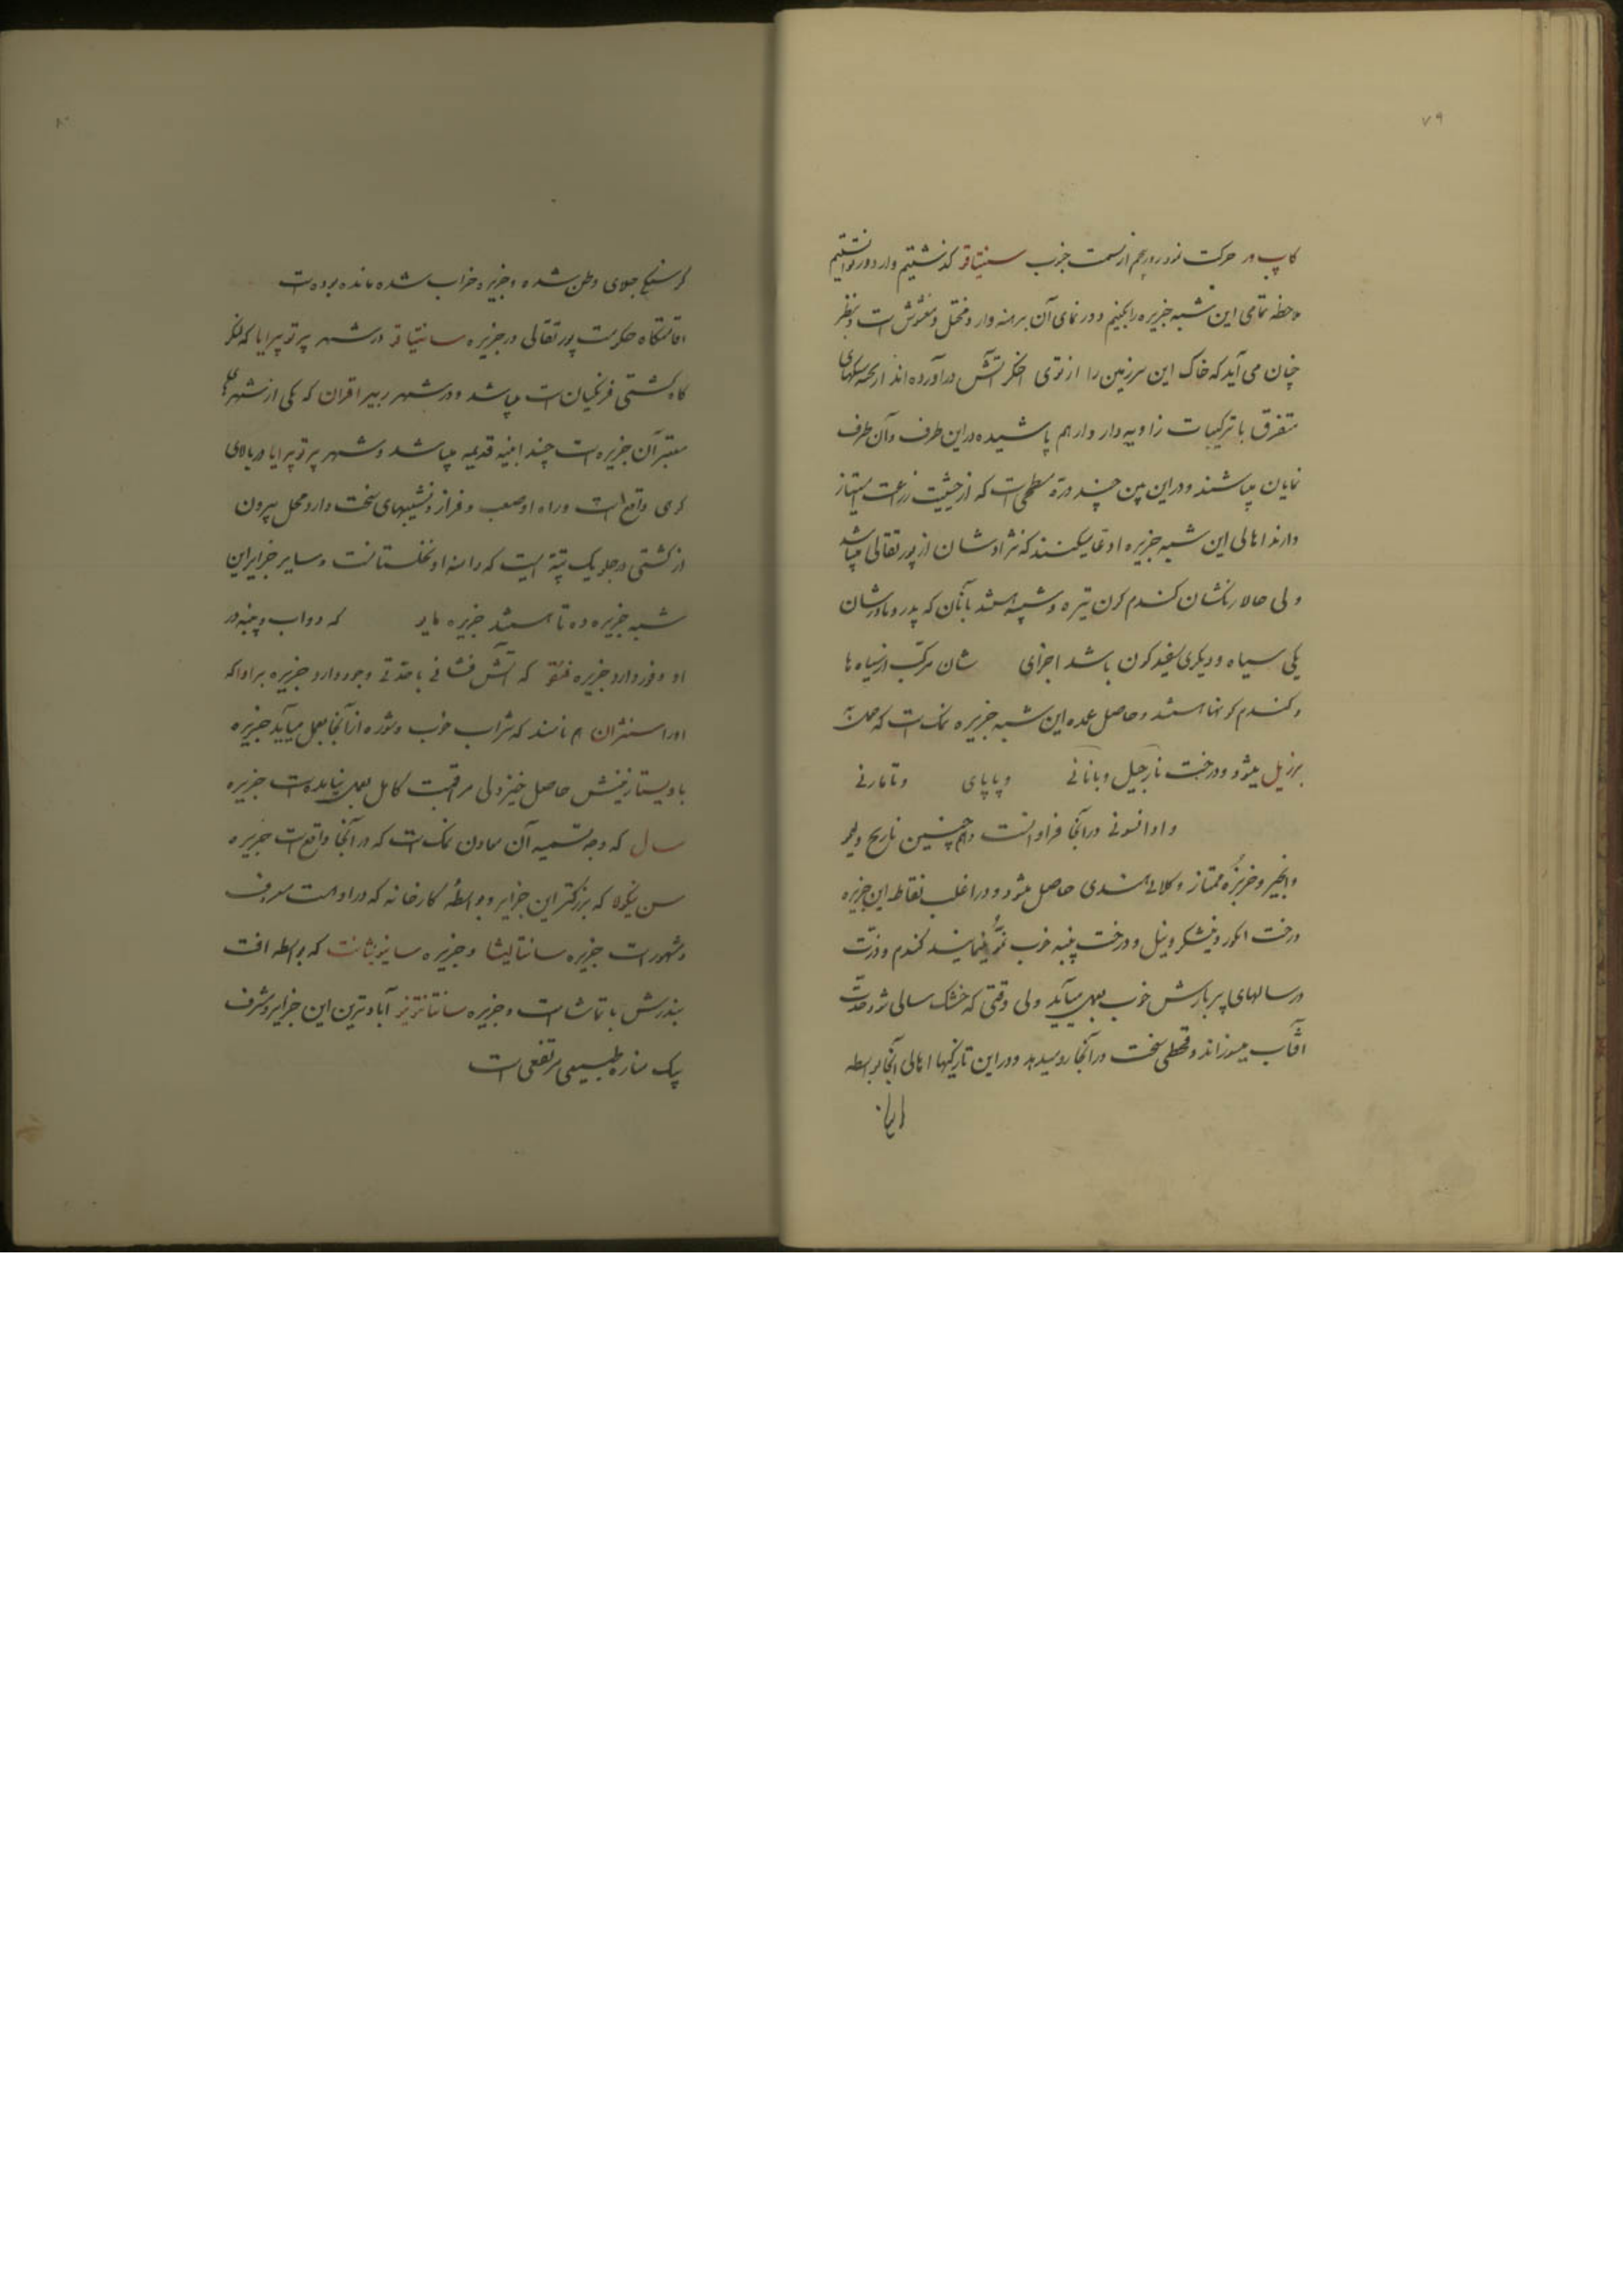 ۷۹
کاپ ور حرکت نمود روز پنجم از سمت جنوب سنتیاقو گذشتیم و از دور توانستیم
ملاحظه تمامی این شبه جزیره را بکنیم دورنمای آن برهنه وار و مختل و مغشوش است و بنظر
چنان می آید که خاک این سرزمین را از توی اخگر آتش درآورده اند از بسکه سنگهای
متفرق با ترکیبات زاویه دار دارهم پاشیده در این طرف و آن طرف
نمایان میباشند و در این بین چند درّه سطحی است که از حیثیت زراعت امتیاز
دارند اهالی این شبه جزیره ادعا میکنند که نژادشان از پورتقالی میباشد
ولی حالا رنگشان گندم گون تیره و شبیه هستند بآنان که پدر و مادرشان
یکی سیاه و دیگری سفید گون باشد اجزای شان مرکب از سیاه ها
و گندم گونها هستند و حاصل عمده این شبه جزیره نمک است که حمل به
برزیل میشود و درخت نارجیل و بنانی و پاپای و تامارنی
و اوانسونی در آنجا فراوانست و همچنین نارنج و لیمو
و انجیر و خربزه ممتاز و کلابی هندی حاصل میشود و در اغلب نقاط این جزیره
درخت انگور و نیشکر و نیل و درخت پنبه خوب نموّ مینمایند گندم و ذرّت
در سالهای پر بارش خوب بعمل میآید ولی وقتی که خشک سالی شود حدّت
آفتاب میسوزاند و قحطی سخت در آنجا رو میدهد و در این تاریکیها اهالی آنجا بواسطه
۸۰
گرسنگی جلای وطن شده و جزیره خراب شده مانده بوده است
اقامتگاه حکومت پورتقالی در جزیره سانتیاقو در شهر پرتوپرایا که لنگر
گاه کشتی فرنگیان است میباشد و در شهر ریبراقران که یکی از شهرهای
معتبر آن جزیره است چند ابنیه قدیمه میباشد و شهر پرتوپرایا در بالای
کوهی واقع است و راه او صعب و فراز و نشیبهای سخت دارد محل بیرون
از کشتی در جلو یک تپّه ایست که دامنه او نخلستانست و سایر جزایر این
شبه جزیره ده تا هستند جزیره مایو که دواب و پنبه در
او وفور دارد جزیره فئقو که آتش فشانی با حدّتی وجود دارد جزیره براوا که
اورا سنژان هم نامند که شراب خوب و شوره از آنجا بعمل میآید جزیره
باویستا زمینش حاصل خیز ولی مراقبت کامل بعمل نیامده است جزیره
سال که وجه تسمیه آن معادن نمک است که در آنجا واقع است جزیره
سن نیکولا که بزرگتر این جزایر و بواسطهٔ کارخانه که در او است معروف
و مشهور است جزیره سانتالیشا و جزیره سانیونثانت که بواسطه افت
بندرش با تماشا است و جزیره سانتانتونیز آبادترین این جزایر و مشرف
بیک مناره طبیعی مرتفعی است